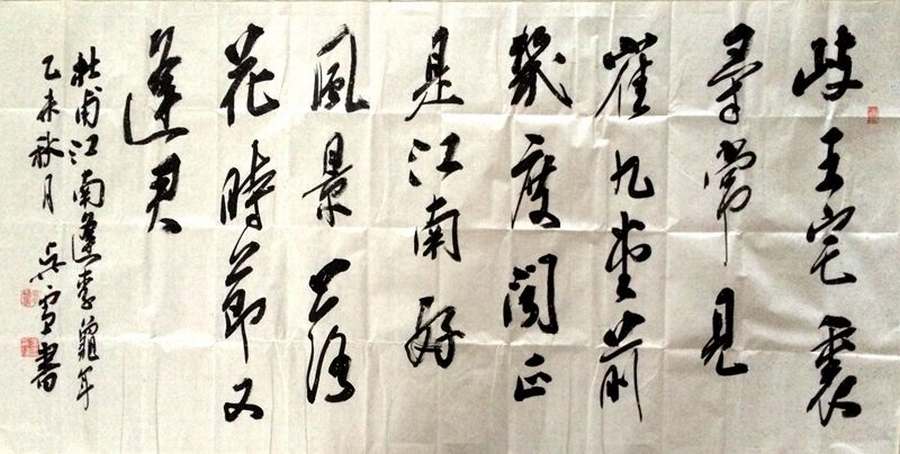 歧王宅裏
尋常見
崔九堂前
幾度聞正
是江南好
風景落
花時節又
逢君
杜甫江南逢李龜年
乙未秋月 吴雪書